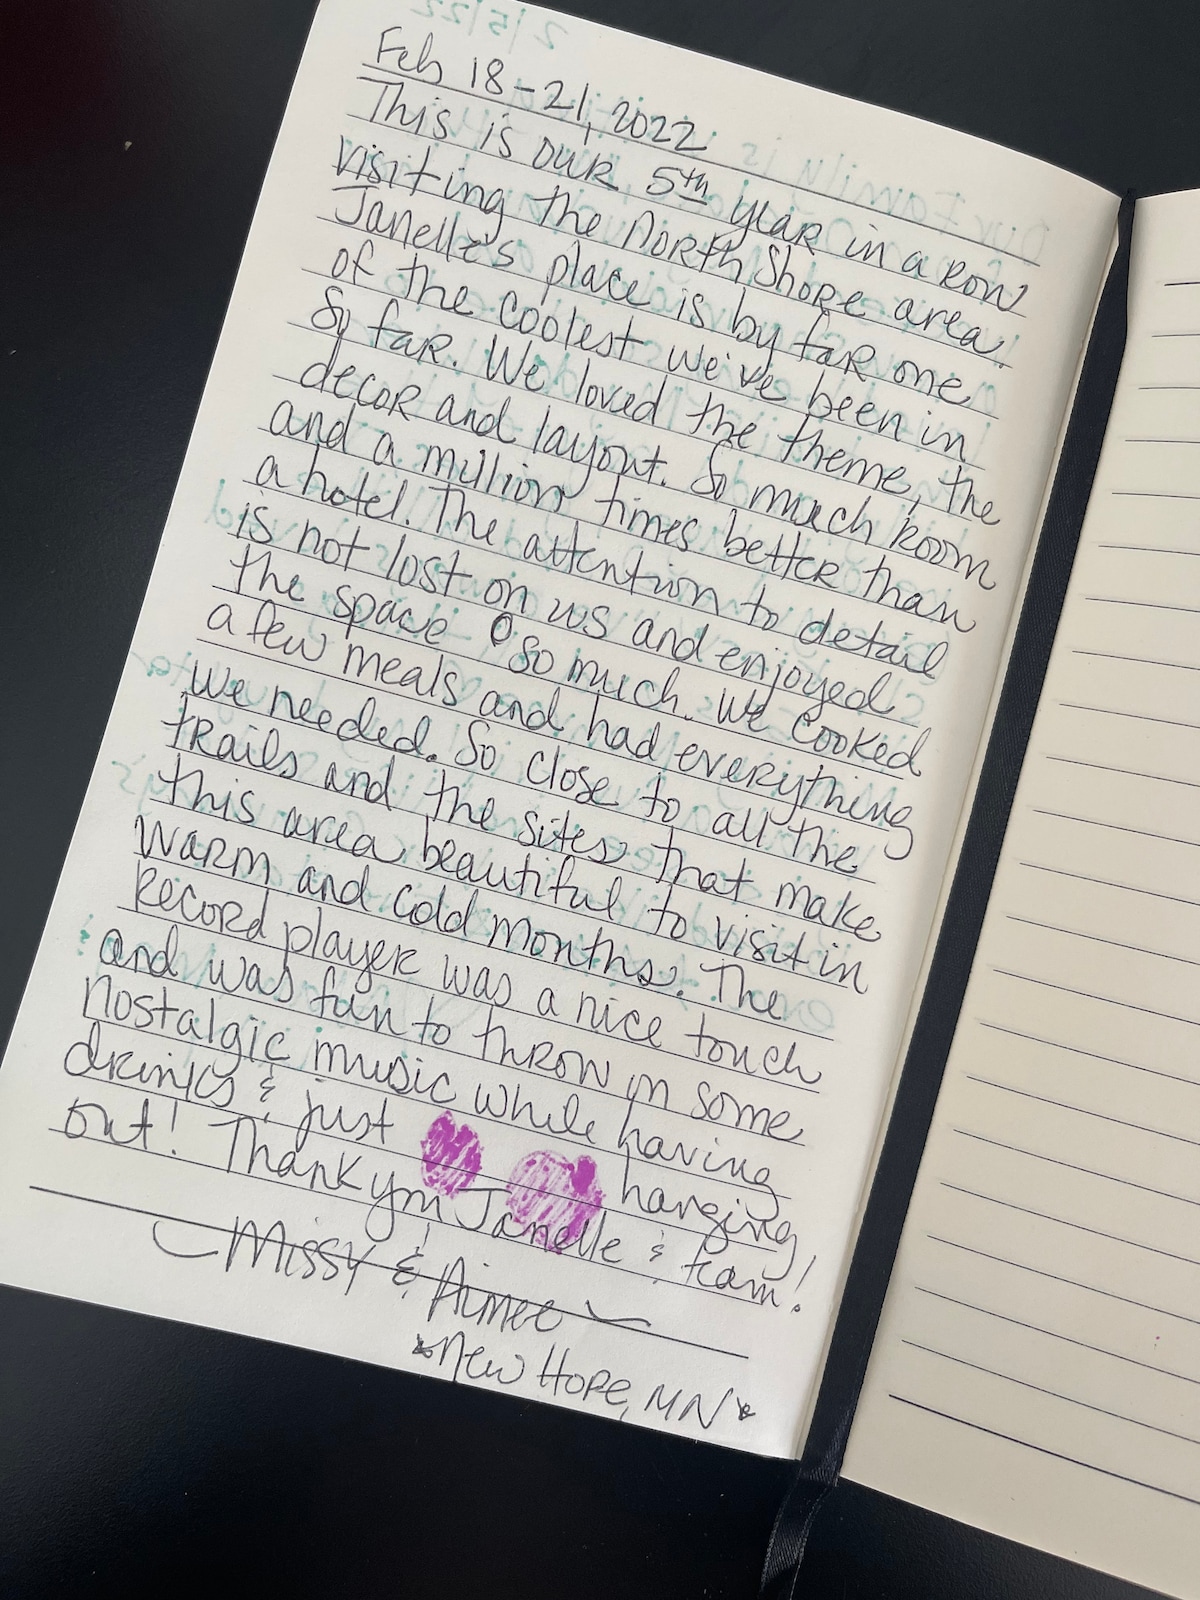 Feb 18-21, 2022
This is our 5th year in a row
visiting the North Shore area.
Janelle's place is by far one
of the coolest we've been in
So far. We loved the theme, the
decor and layout. So much room
and a million times better than
a hotel. The attention to detail
is not lost on us and enjoyed
the space so much. We cooked
a few meals and had everything
we needed. So close to all the
trails and the sites that make
this area beautiful to visit in
warm and cold months. The
record player was a nice touch
and was fun to throw in some
nostalgic music while having
drinks & just hanging
out! Thank you Janelle & team!
Missy & Aimee
*New Hope, MN*
2/5/22
Our Family is